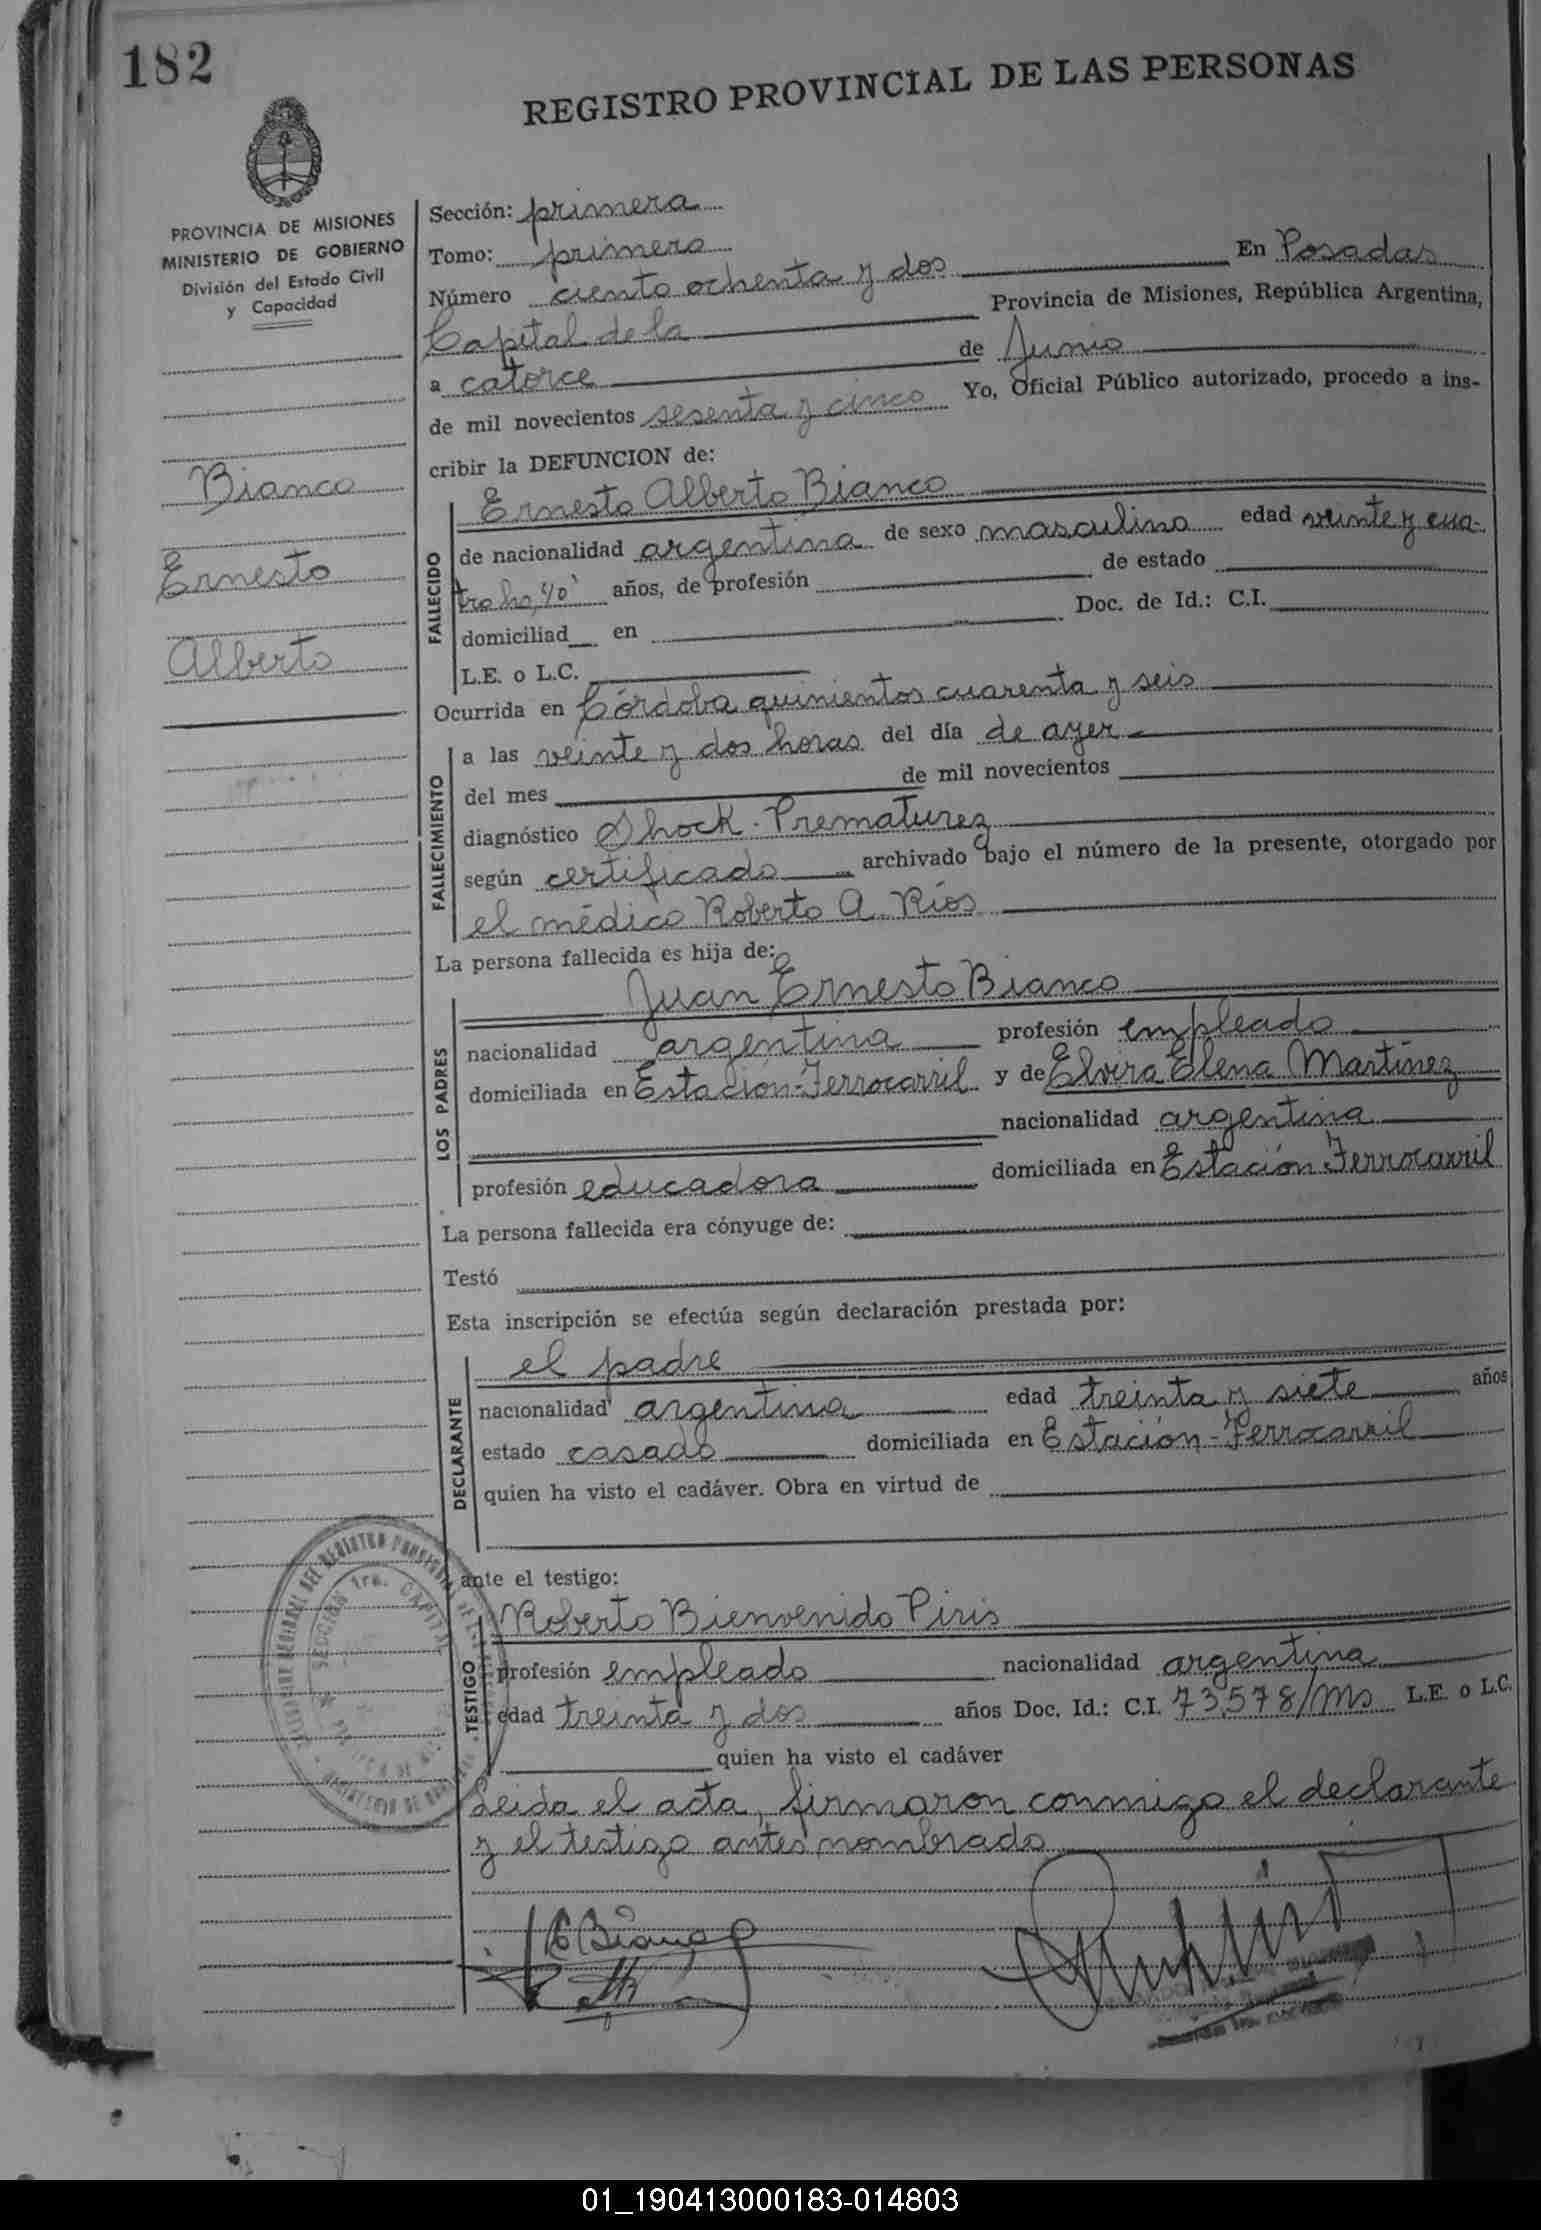 182
REGISTRO PROVINCIAL DE LAS PERSONAS
PROVINCIA DE MISIONES
MINISTERIO DE GOBIERNO
División del Estado Civil
y Capacidad
Bianco
Ernesto
Alberto
Sección: primera
Tomo: primero
Número ciento ochenta y dos En Posadas
Capital de la Provincia de Misiones, República Argentina,
a catorce de Junio
de mil novecientos sesenta y cinco Yo, Oficial Público autorizado, procedo a ins-
cribir la DEFUNCION de:
FALLECIDO
Ernesto Alberto Bianco
de nacionalidad argentina de sexo masculino edad veinte y cua-
tro hs, 40' años, de profesión de estado
domiciliad en Doc. de Id.: C.I.
L.E. o L.C.
Ocurrida en Córdoba quinientos cuarenta y seis
FALLECIMIENTO
a las veinte y dos horas del día de ayer
del mes de mil novecientos
diagnóstico Shock - Prematurez
según certificado archivado bajo el número de la presente, otorgado por
el médico Roberto A. Ríos
La persona fallecida es hija de:
LOS PADRES
Juan Ernesto Bianco
nacionalidad argentina profesión empleado
domiciliada en Estación-Ferrocarril y de Elvira Elena Martínez
nacionalidad argentina
profesión educadora domiciliada en Estación Ferrocarril
La persona fallecida era cónyuge de:
Testó
Esta inscripción se efectúa según declaración prestada por:
DECLARANTE
el padre
nacionalidad argentina edad treinta y siete años
estado casado domiciliada en Estación-Ferrocarril
quien ha visto el cadáver. Obra en virtud de
ante el testigo:
TESTIGO
Roberto Bienvenido Piris
profesión empleado nacionalidad argentina
edad treinta y dos años Doc. Id.: C.I. 73,578/Ms L.E. o L.C.
quien ha visto el cadáver
Leída el acta, firmaron conmigo el declarante
y el testigo antes nombrado
SECCION 1ra. CAPITAL
01_190413000183-014803